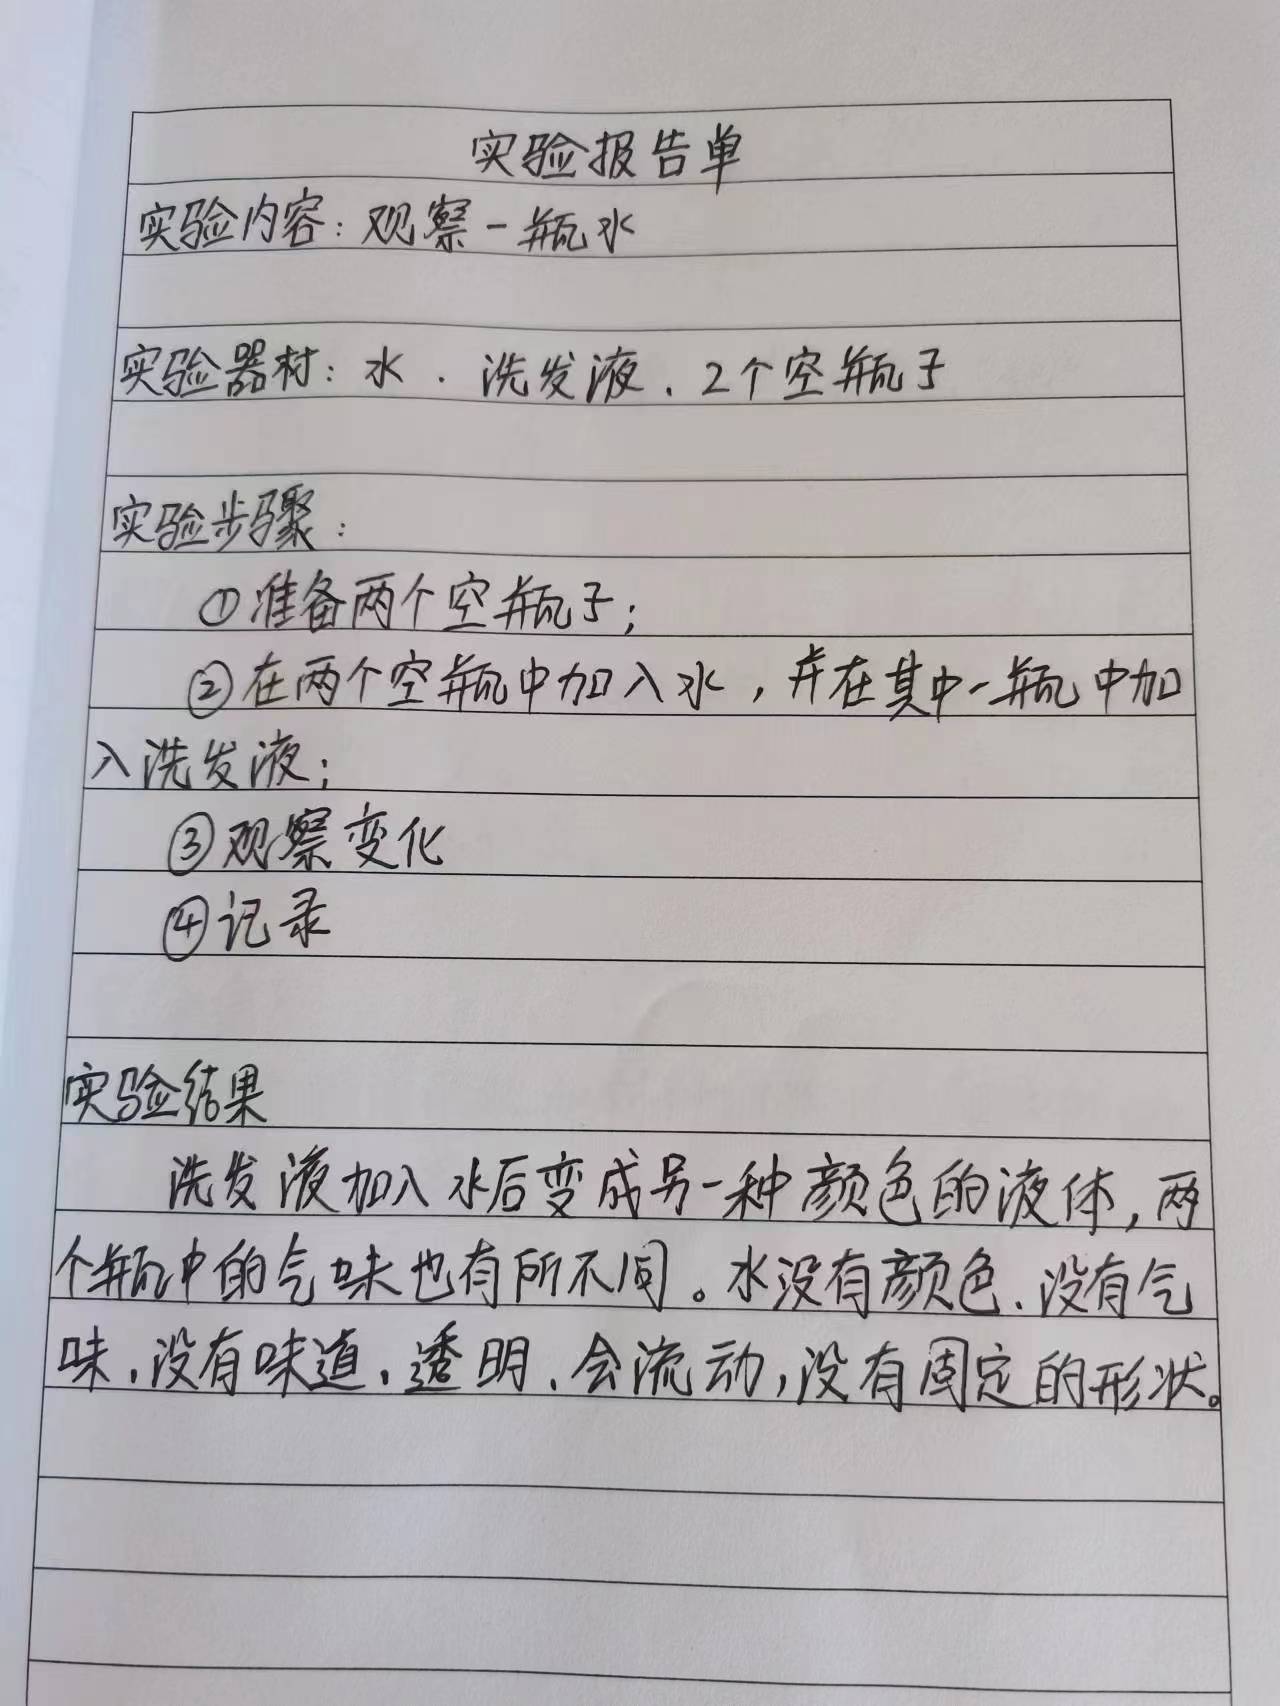 实验报告单
实验内容：观察一瓶水
实验器材：水、洗发液、2个空瓶子
实验步骤：
①准备两个空瓶子；
②在两个空瓶中加入水，并在其中一瓶中加
入洗发液；
③观察变化
④记录
实验结果
洗发液加入水后变成另一种颜色的液体，两
个瓶中的气味也有所不同。水没有颜色、没有气
味、没有味道、透明、会流动，没有固定的形状。